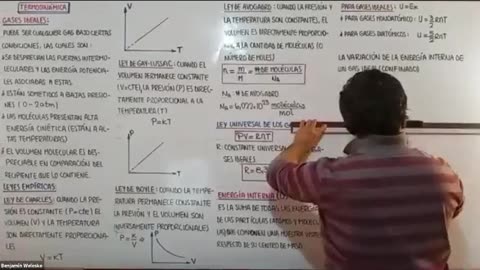 TERMODINÁMICA
GASES IDEALES:
PUEDE SER CUALQUIER GAS BAJO CIERTAS
CONDICIONES, LAS CUALES SON:
SE DESPRECIAN LAS FUERZAS INTERMO-
LECULARES Y LAS ENERGÍAS POTENCIA-
LES ASOCIADAS A ESTAS.
ESTÁN SOMETIDOS A BAJAS PRESIO-
NES (0-2atm)
LAS MOLÉCULAS PRESENTAN ALTA
ENERGÍA CINÉTICA (ESTÁN A AL-
TAS TEMPERATURAS)
EL VOLUMEN MOLECULAR ES DES-
PRECIABLE EN COMPARACIÓN DEL
RECIPIENTE QUE LO CONTIENE.
LEYES EMPÍRICAS:
LEY DE CHARLES: CUANDO LA PRE-
SIÓN ES CONSTANTE (P=cte) EL VO-
LUMEN (V) Y LA TEMPERATURA
SON DIRECTAMENTE PROPORCIONA-
LES
V = KT
V
T
LEY DE GAY-LUSSAC: CUANDO EL
VOLUMEN PERMANECE CONSTANTE
(V=cte) LA PRESIÓN (P) ES DIRECTA-
MENTE PROPORCIONAL A LA
TEMPERATURA (T)
P=KT
P
T
LEY DE BOYLE: CUANDO LA TEMPE-
RATURA PERMANECE CONSTANTE
LA PRESIÓN Y EL VOLUMEN SON
INVERSAMENTE PROPORCIONALES
P = K/V
P
V
LEY DE AVOGADRO: CUANDO LA PRESIÓN Y
LA TEMPERATURA SON CONSTANTES, EL
VOLUMEN ES DIRECTAMENTE PROPORCIO-
NAL A LA CANTIDAD DE MOLÉCULAS (O
NÚMERO DE MOLES)
n = m/M = # DE MOLÉCULAS/NA
NA: # DE AVOGADRO
LEY UNIVERSAL DE LOS
PV = RnT
R: CONSTANTE UNIVERSAL
ENERGÍA INTERNA (U)
ES LA SUMA DE TODAS LAS ENERGÍAS
DE LAS PARTÍCULAS (ÁTOMOS Y MOLÉCU-
LAS) QUE COMPONEN UN
RESPECTO DE SU CENTRO DE MASA
PARA GASES IDEALES: U = Ek
LA VARIACIÓN DE LA ENERGÍA INTERNA DE
UN GAS IDEAL CONFINADO
Benjamín Weinske